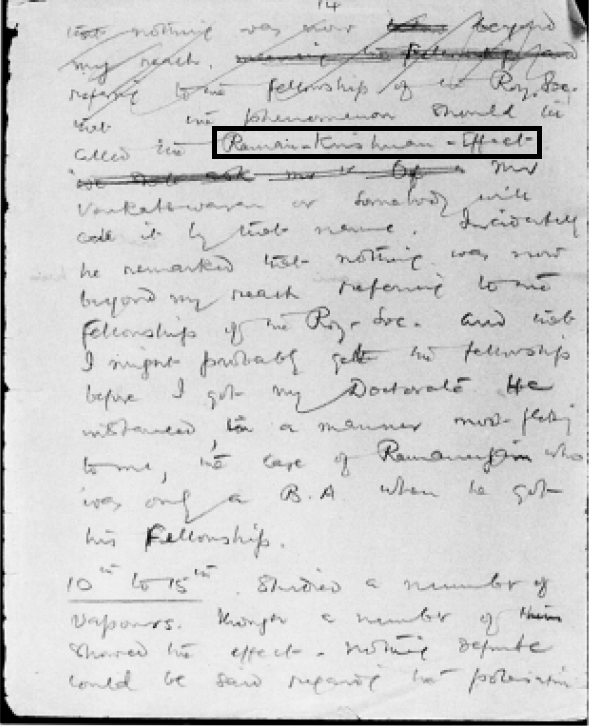 14
that nothing was now beyond
my reach. meaning the Fellowship and
referring to the fellowship of the Roy. Soc.
that the phenomenon should be
called the Raman-Krishnan-Effect
Mr
Venkateswaran or Somebody will
call it by that name. Incidentally
he remarked that nothing was now
beyond my reach referring to the
fellowship of the Roy. Soc. and that
I might probably get the fellowship
before I got my Doctorate He
instanced, in a manner most flattg
to me, the case of Ramanujam who
was only a B.A when he got
his Fellowship.
10th to 15th. Studied a number of
Vapours. Though a number of them
showed the effect - nothing definite
could be said regarding the polarisatin